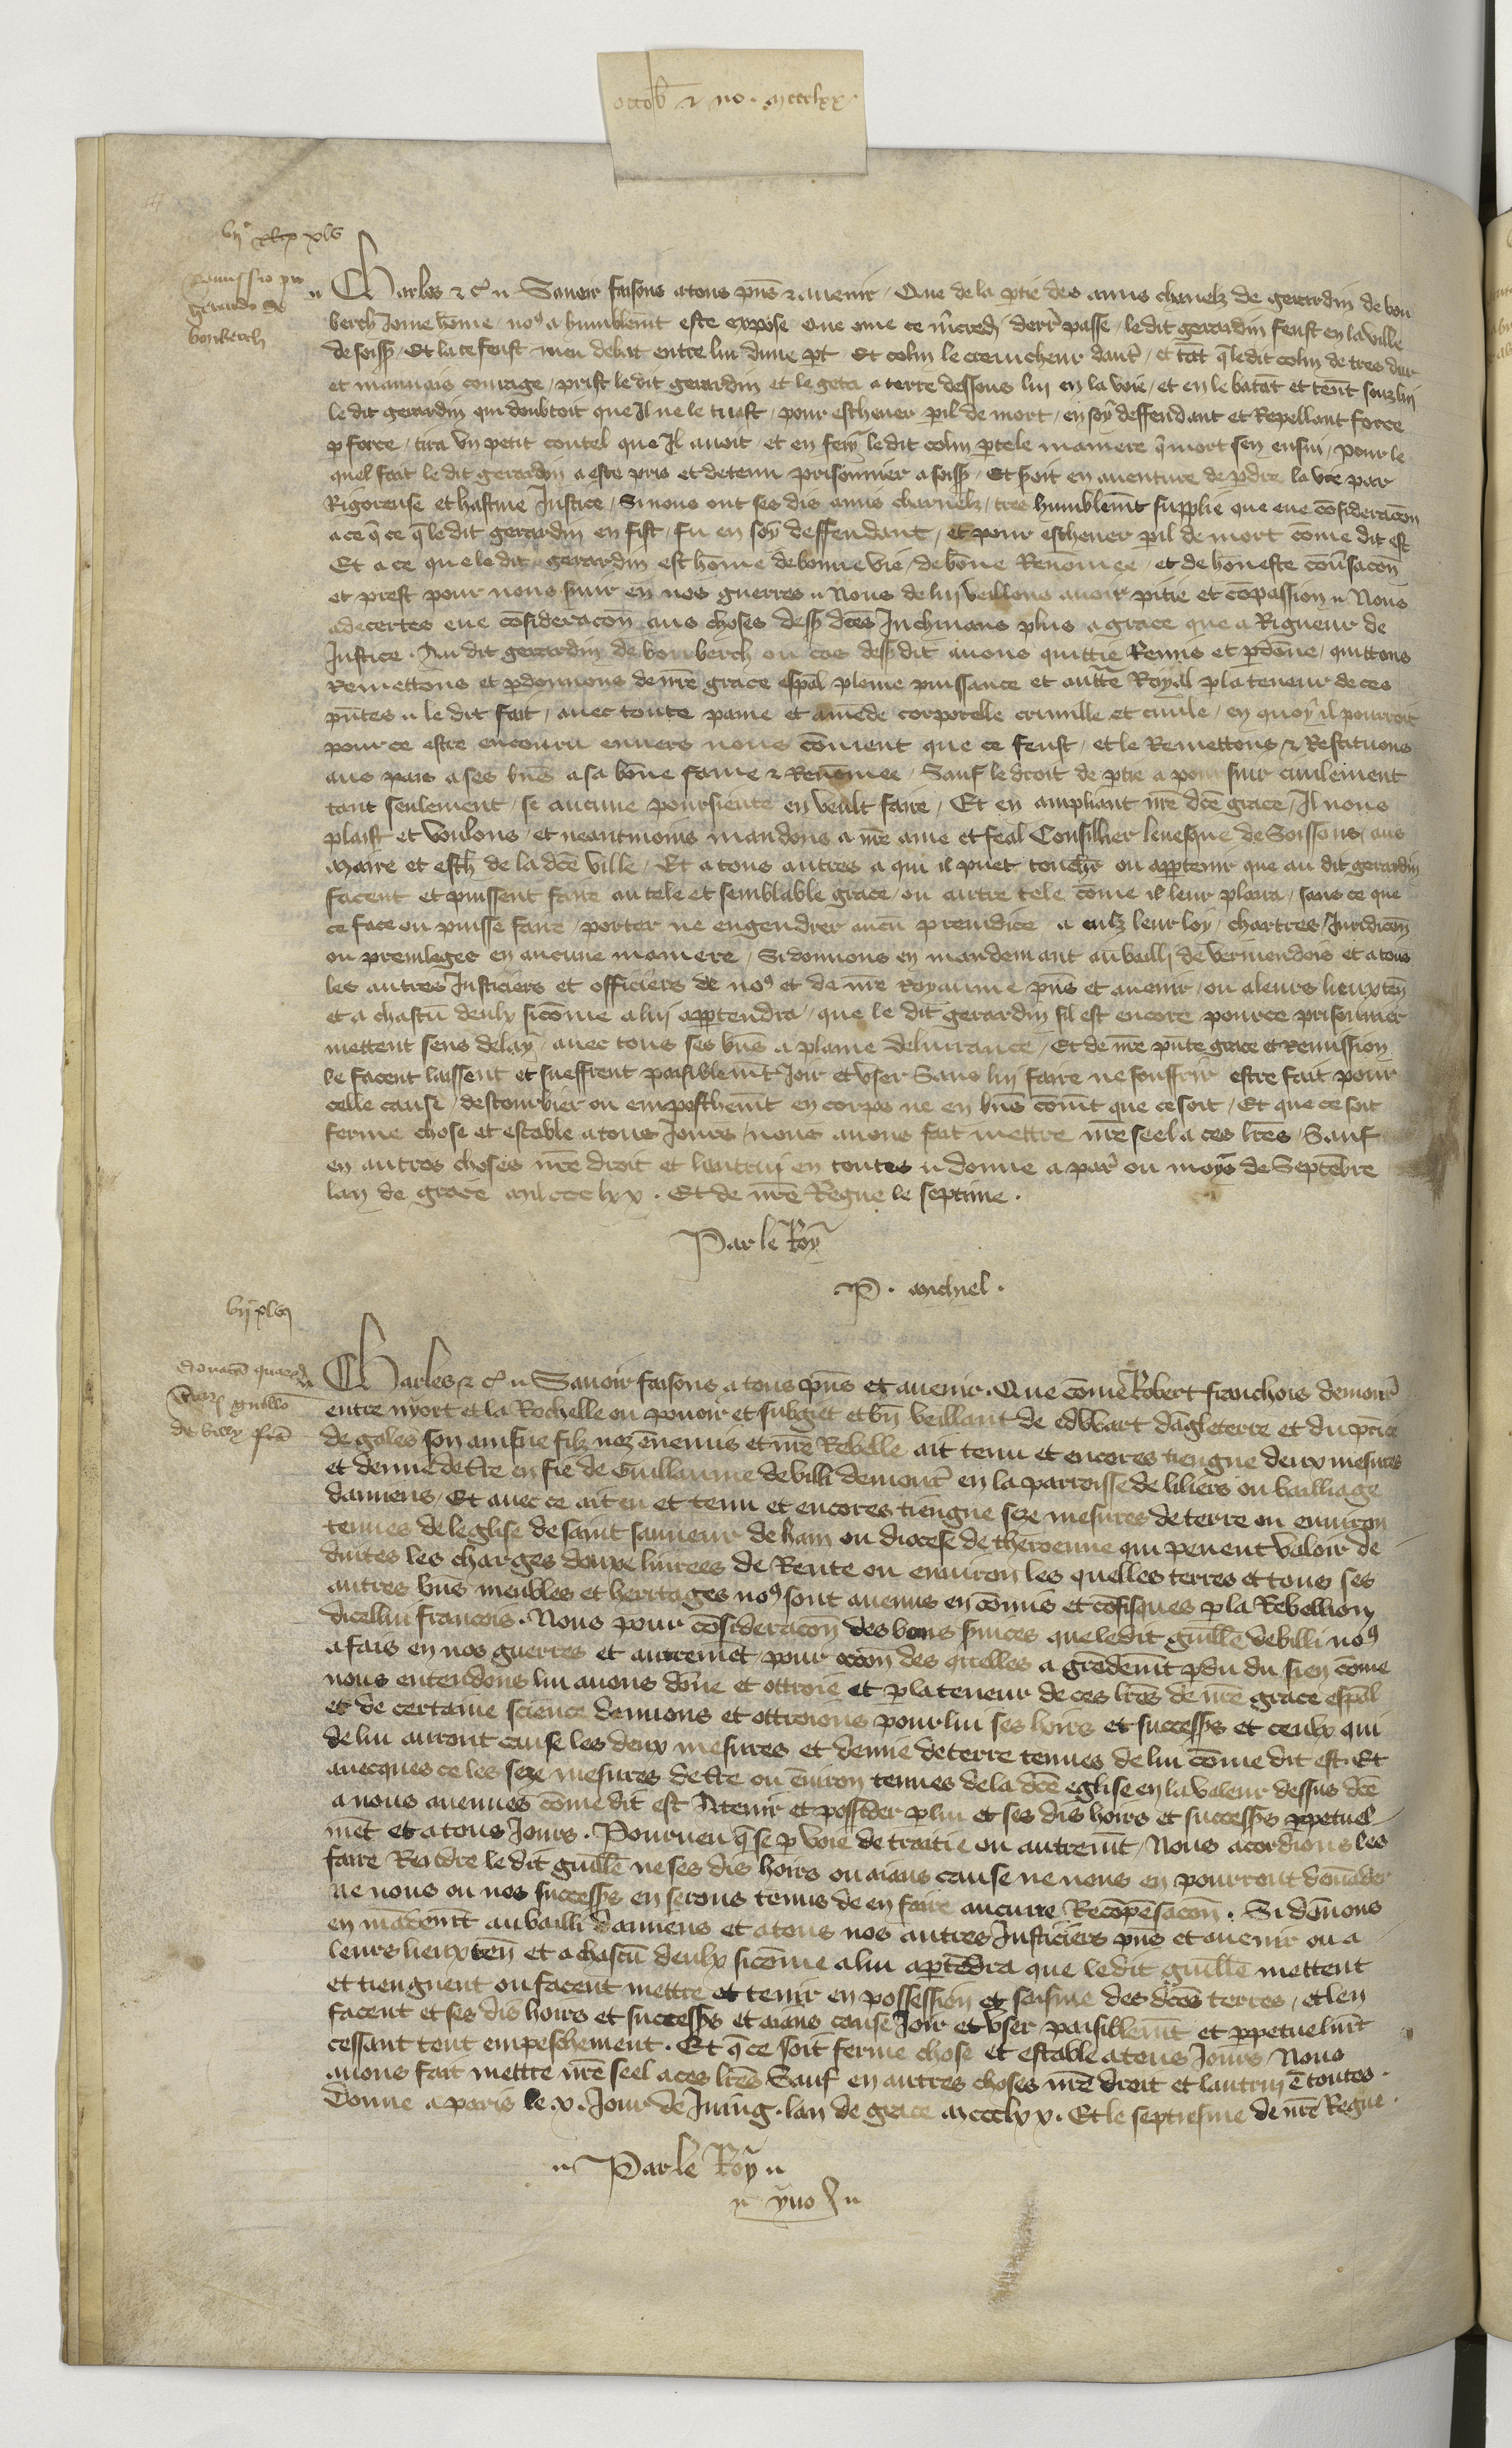 octob̄ ⁊ no. mccclxx.
vijᶜ xlv
Remissio pro
Gerardo de
bonberch
Charles ⁊ cᵃ. Savoir faisons a tous pñs ⁊ avenir, Que de la ptie des amis charnelz de gerardin de bon
berch Jone hōme, noꝰ a humblemt̄ este expose que cōme ce mercredi derr̄ passe, le dit gerardin feust en la ville
de soiss̄, Et la ce feust meu debat entre lui dune pt, Et colin le cremcheur dautr̄, et tāt q̄ ledit colin de tres dur
et mauvais courage, prist le dit gerardin et le geta a terre dessous luy en la voie, et en le batāt et tenāt souz luy
le dit gerardin qui doubtoit que Il ne le tuast, pour eschever pil de mort, en soy deffendant et Repellant force
p force, tira un petit coutel que Il avoit, et en fery ledit colin p tele maniere q̄ mort sen ensui, Pour le
quel fait le dit gerardin a este pris et detenu prisonnier a soiss̄, Et seroit en aventure de pdre la vie par
Rigoreuse et hastive Justice, Si nous ont ses dis amis charnelz, tres humblemt̄ supplie que eue cōsideracōn
a ce q̄ ce q̄ ledit gerardin en fist, fu en soy deffendant, et pour eschever pil de mort cōme dit est
Et a ce que le dit gerardin est hōme de bonne vie, de bōne Renōmee, et de hōneste cōvsacōn
et prest pour nous svir en nos guerres, Nous de luy veillons avoir pitie et cōpassion, Nous
adecertes eue cōsideracōn aus choses dess̄ dc̄es Inclinans plus a grace que a Rigueur de
Justice, Au dit gerardin de bonberch ou cas dess̄ dit avons quittie Remis et pdōne, quittons
Remettons et pdonnons de nr̄e grace esp̄al pleine puissance et auctte Royal p la teneur de ces
pñtes, le dit fait, avec toute paine et amēde corporelle criminelle et civile, en quoy il pourroit
pour ce estre encouru envers nous cōment que ce feust, et le Remettons ⁊ Restituons
aus pais a ses bñs a sa bōne fame ⁊ Renōmee, Sauf le droit de ptie a poursuir civilement
tant seulement, se aucune poursiente en veult faire, Et en ampliant nr̄e dc̄e grace, Il nous
plaist et voulons, et neantmoins mandons a nr̄e ame et feal Consillier levesque de Soissons, aus
Maire et esch̄ de la dc̄e ville, Et a tous autres a qui il puet touchr̄ ou apptenir que au dit gerardin
facent et puissent faire autele et semblable grace, ou autre tele cōme il leur plaira, sans ce que
ce face ou puisse faire, porter ne engendrer aucū preiudice a eulz leur loy, chartres, Juridicōn
ou previleges en aucune maniere, Si donnons en mandemant au bailli de vermendois et a tous
les autres Justiciers et officiers de noꝰ et de nr̄e royaume pñs et avenir, ou a leurs lieuxten̄
et a chascū deulx sicōme a luy apptendra, que le dit gerardin sil est encore pour ce prisonnier
mettent sens delay, avec tous ses bñs a plaine delivrance, Et de nr̄e pñte grace et Remission
le facent laissent et sueffrent paisiblemt̄ Joir et user Sans luy faire ne souffrir estre fait pour
celle cause, destourbier ou empeschemt̄ en corps ne en bñs cōmt̄ que ce soit, Et que ce soit
ferme chose et estable a tous Jours, nous avons fait mettre nr̄e seel a ces lr̄es, Sauf
en autres choses nr̄e droit et lautruy en toutes, donne a par̄ ou moys de Septēbre
lan de grace mil ccc lxx. Et de nr̄e Regne le septime.
Par le Roy
P. michiel.
vijᶜ xlvj
Donatio
guillo
de billy
Charles ⁊ cᵃ. Savoir faisons a tous pñs et avenir. Que cōme Robert franchois demour̄
entre nyort et la Rochelle ou povoir et subget et bn̄ veillant de edwart dāgleterre et du prīce
de gales son ainsne filz noz ēnemis et nr̄e Rebelle ait tenu et encores tiengne deux mesures
et demie de tr̄e en fie de Guillaume de billi demour̄ en la parroisse de liliers ou bailliage
damiens, Et avec ce ait eu et tenu et encores tiengne seze mesures de terre ou environ
tenues de leglise de saint sauveur de ham ou diocese de theroenne qui pevent valoir de
duites les charges douze livrees de Rente ou environ les quelles terres et tous ses
autres bñs meubles et heritages noꝰ sont avenus en cōmis et cōfisques p la Rebellion
dicellui francois. Nous pour cōsideracōn des bons svices que ledit guill̄e de billi noꝰ
a fais en nos guerres et autremēt, pour occōn des quelles a grādemt̄ pdu du sien cōme
nous entendons lui avons dōne et ottroie et p la teneur de ces lr̄es de nr̄e grace esp̄al
et de certaine science donnons et ottroions pour lui ses hoirs et successs̄ et ceulx qui
de lui auront cause les deux mesures et demie de terre tenues de lui cōme dit est. Et
avecques ce les seze mesures de tr̄e ou ēviron tenues de la dc̄e eglise en la valeur dessus dc̄e
a nous avenues cōme dit est A tenir et posseder p lui et ses dis hoirs et successs̄ ppetuel-
mēt et a tous Jours. Pourveu q̄ se p voie de traitie ou autremt̄, Nous acordions les
faire Rendre le dit guill̄e ne ses dis hoirs ou aians cause ne nous en pourront demāder
ne nous ou nos successs̄ en serons tenus de en faire aucune Recōpēsacōn. Si dōnons
en mādemt̄ au bailli damiens et a tous nos autres Justiciers pñs et avenir ou a
leurs lieuxten̄ et a chascū deulx sicōme a lui aptēdra que ledit guill̄e mettent
et tiengnent ou facent mettre et tenir en possession et saisine des dc̄es terres, et len
facent et ses dis hoirs et successs̄ et aians cause Joir et user paisiblemt̄ et ppetuelmt̄
cessant tout empeschement. Et q̄ ce soit ferme chose et estable a tous Jours, Nous
avons fait mettre nr̄e seel a ces lr̄es Sauf en autres choses nr̄e droit et lautruy ē toutes.
Donne a paris le x. Jour de Juing. lan de grace mccclxx. Et le septiesme de nr̄e Regne.
Par le Roy
yvo